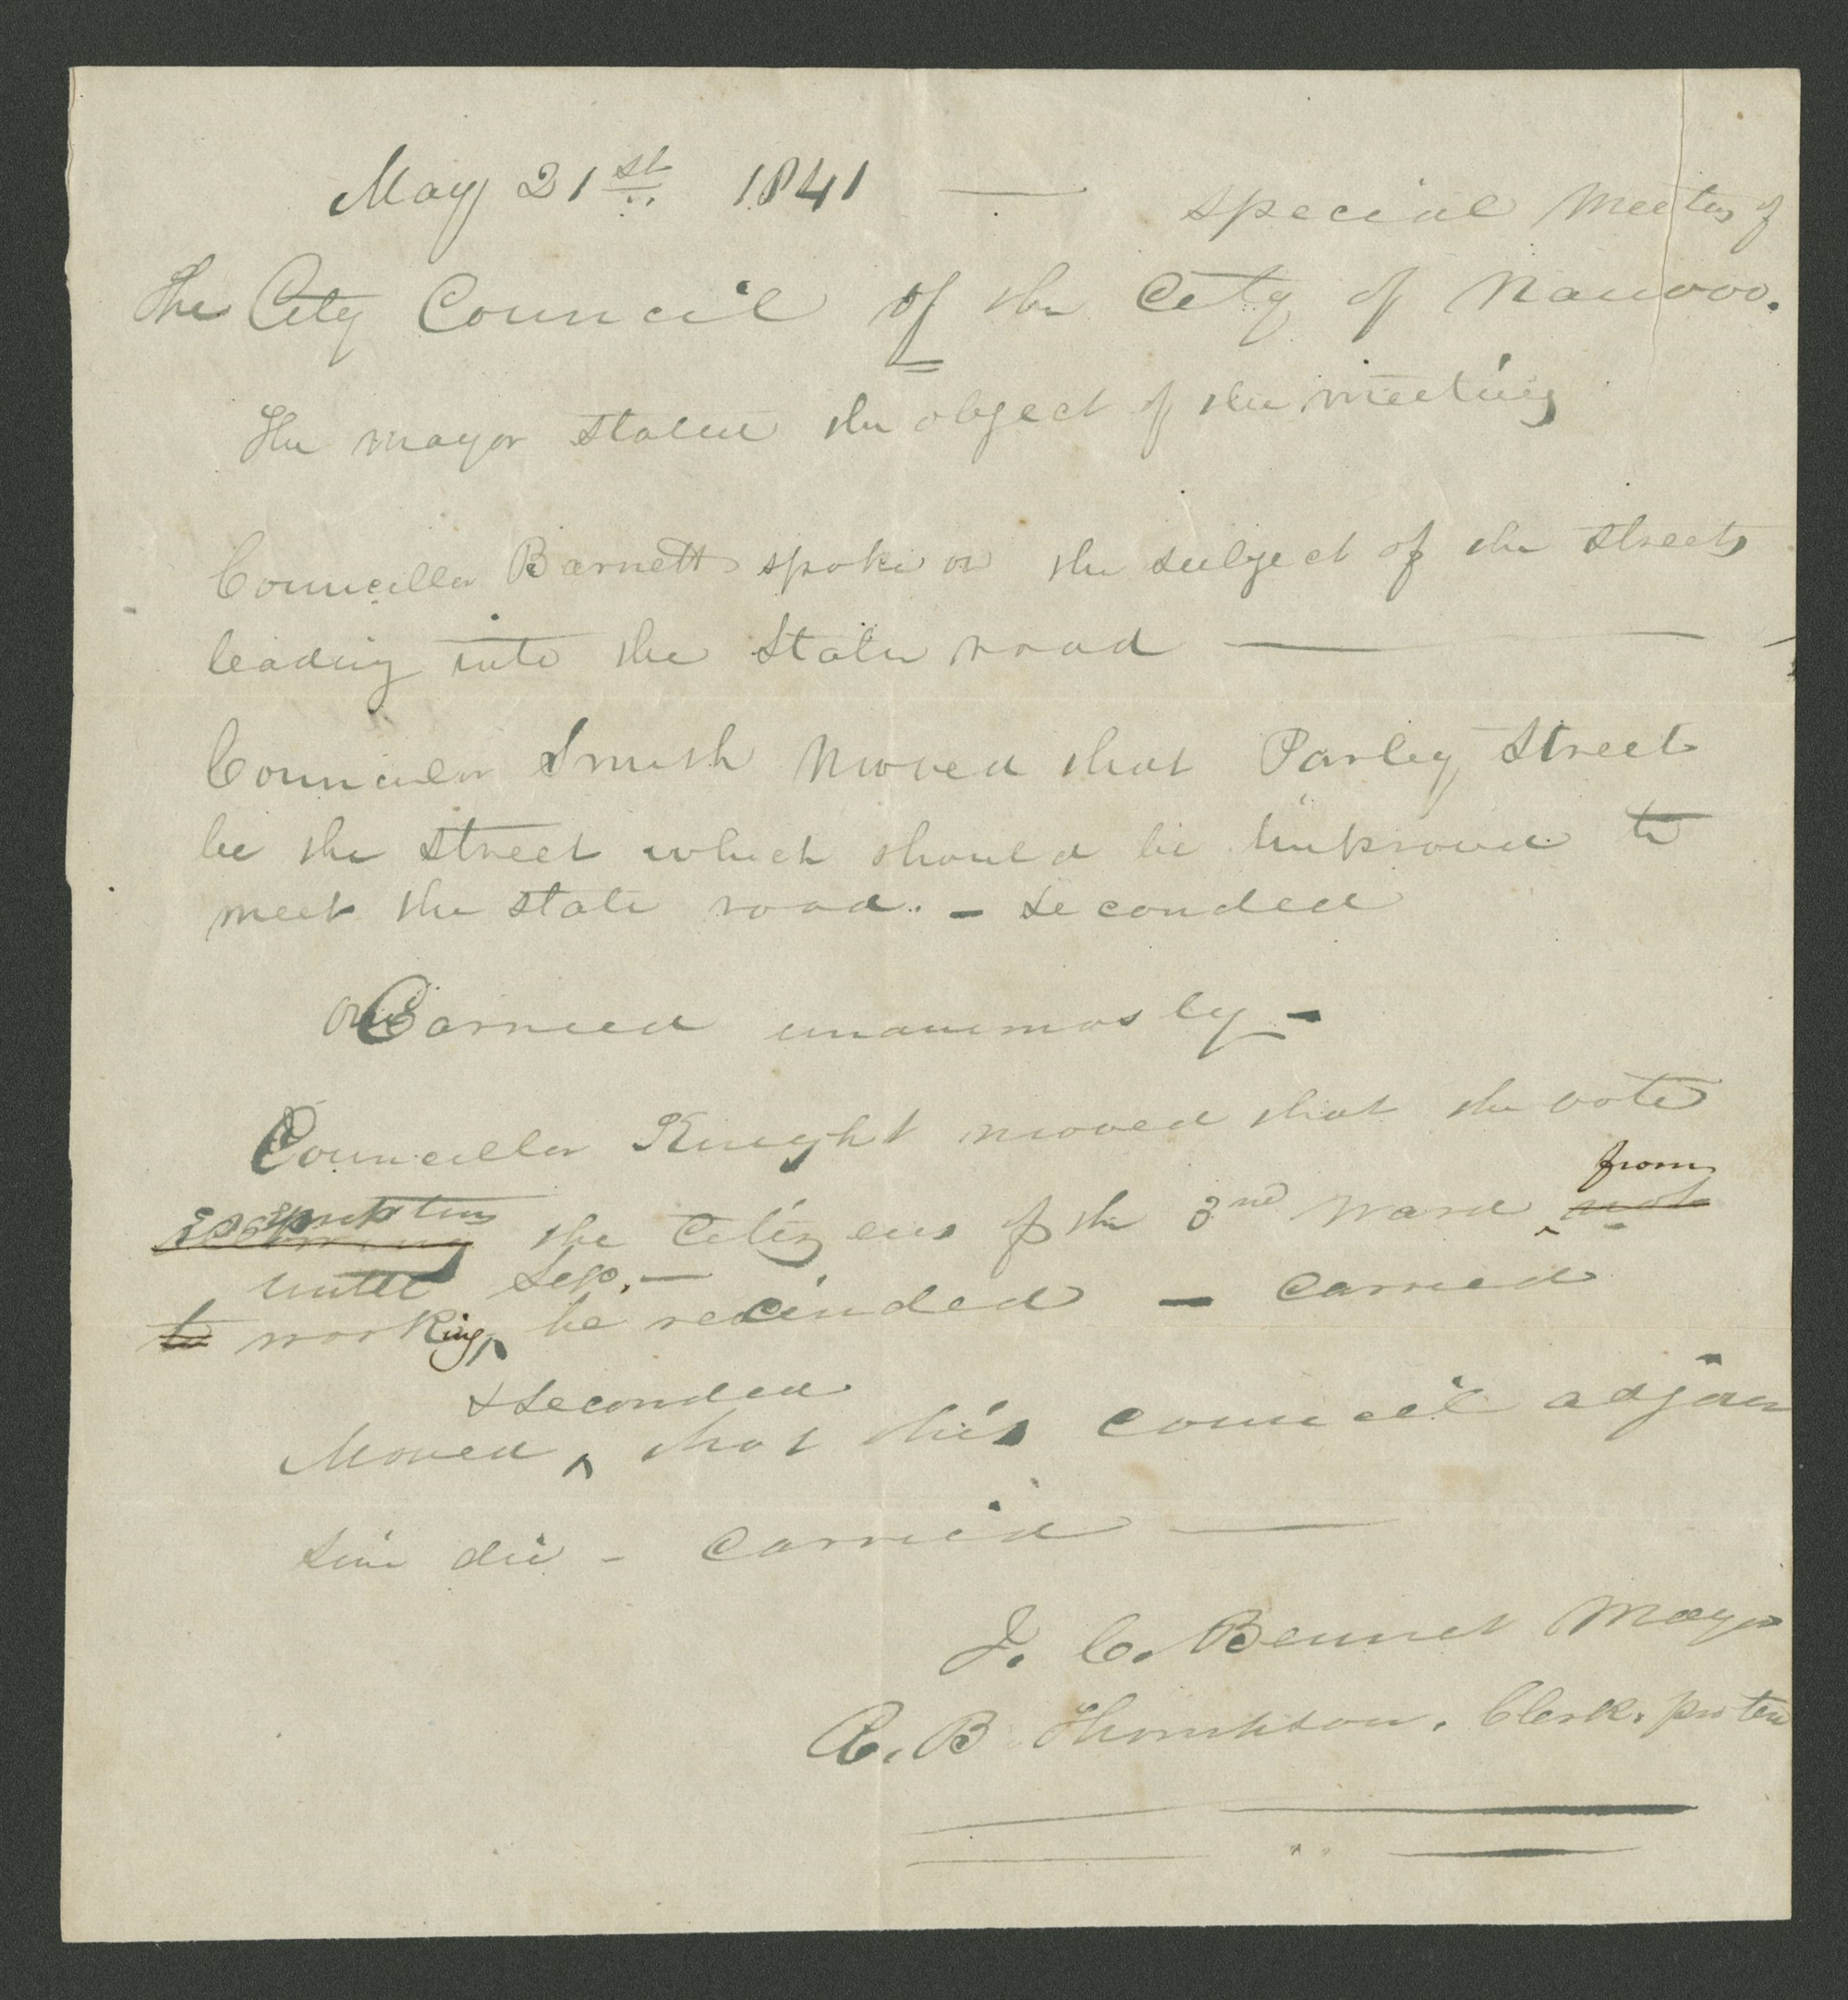 May 21st 1841 — special Meeting of
the City Council of the City of Nauvoo.
The mayor stated the object of the meeting
Councillor Barnett spoke on the subject of the streets
leading into the State road —
Councilor Smith Moved that Parley Street
be the street which should be imkroved to
meet the state road. - seconded
Carried unanimosly -
Councillor Knight moved that the vote
exempting the Citizens of the 3rd Ward from
until Sep. —
to working be recinded - carried
& seconded
Moved, that this council adjourn
sine die - carried —
J. C. Bennet Mayor
R. B Thompson. Clerk. pro tem